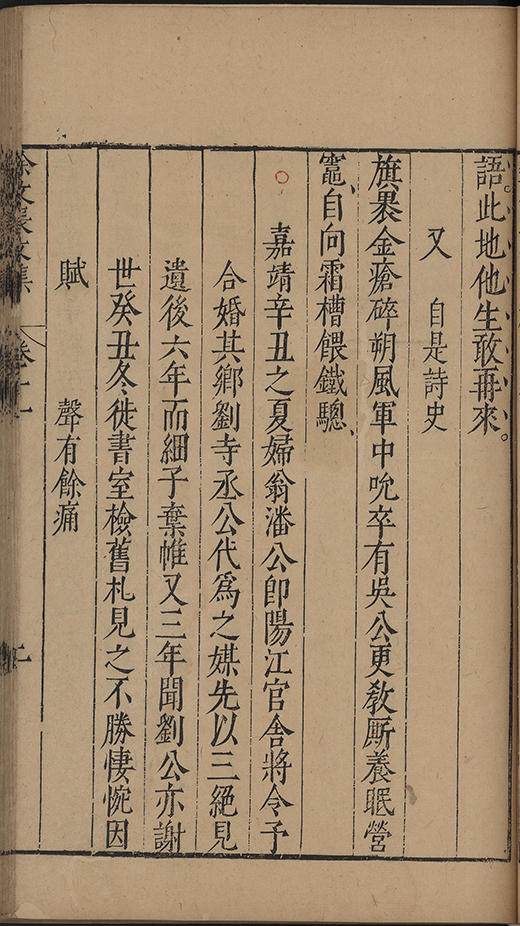 語此地他生敢再來
又 自是詩史
旗褁金瘡碎朔風軍中吮卒有吳公更教厮養眠營
竈自向霜槽餵鐵驄
嘉靖辛丑之夏婦翁潘公卽陽江官舍將令予
合婚其鄉劉寺丞公代爲之媒先以三絕見
遺後六年而細子棄帷又三年聞劉公亦謝
世癸丑冬徙書室檢舊札見之不勝悽惋因
賦 聲有餘痛
徐文長文集 卷十二